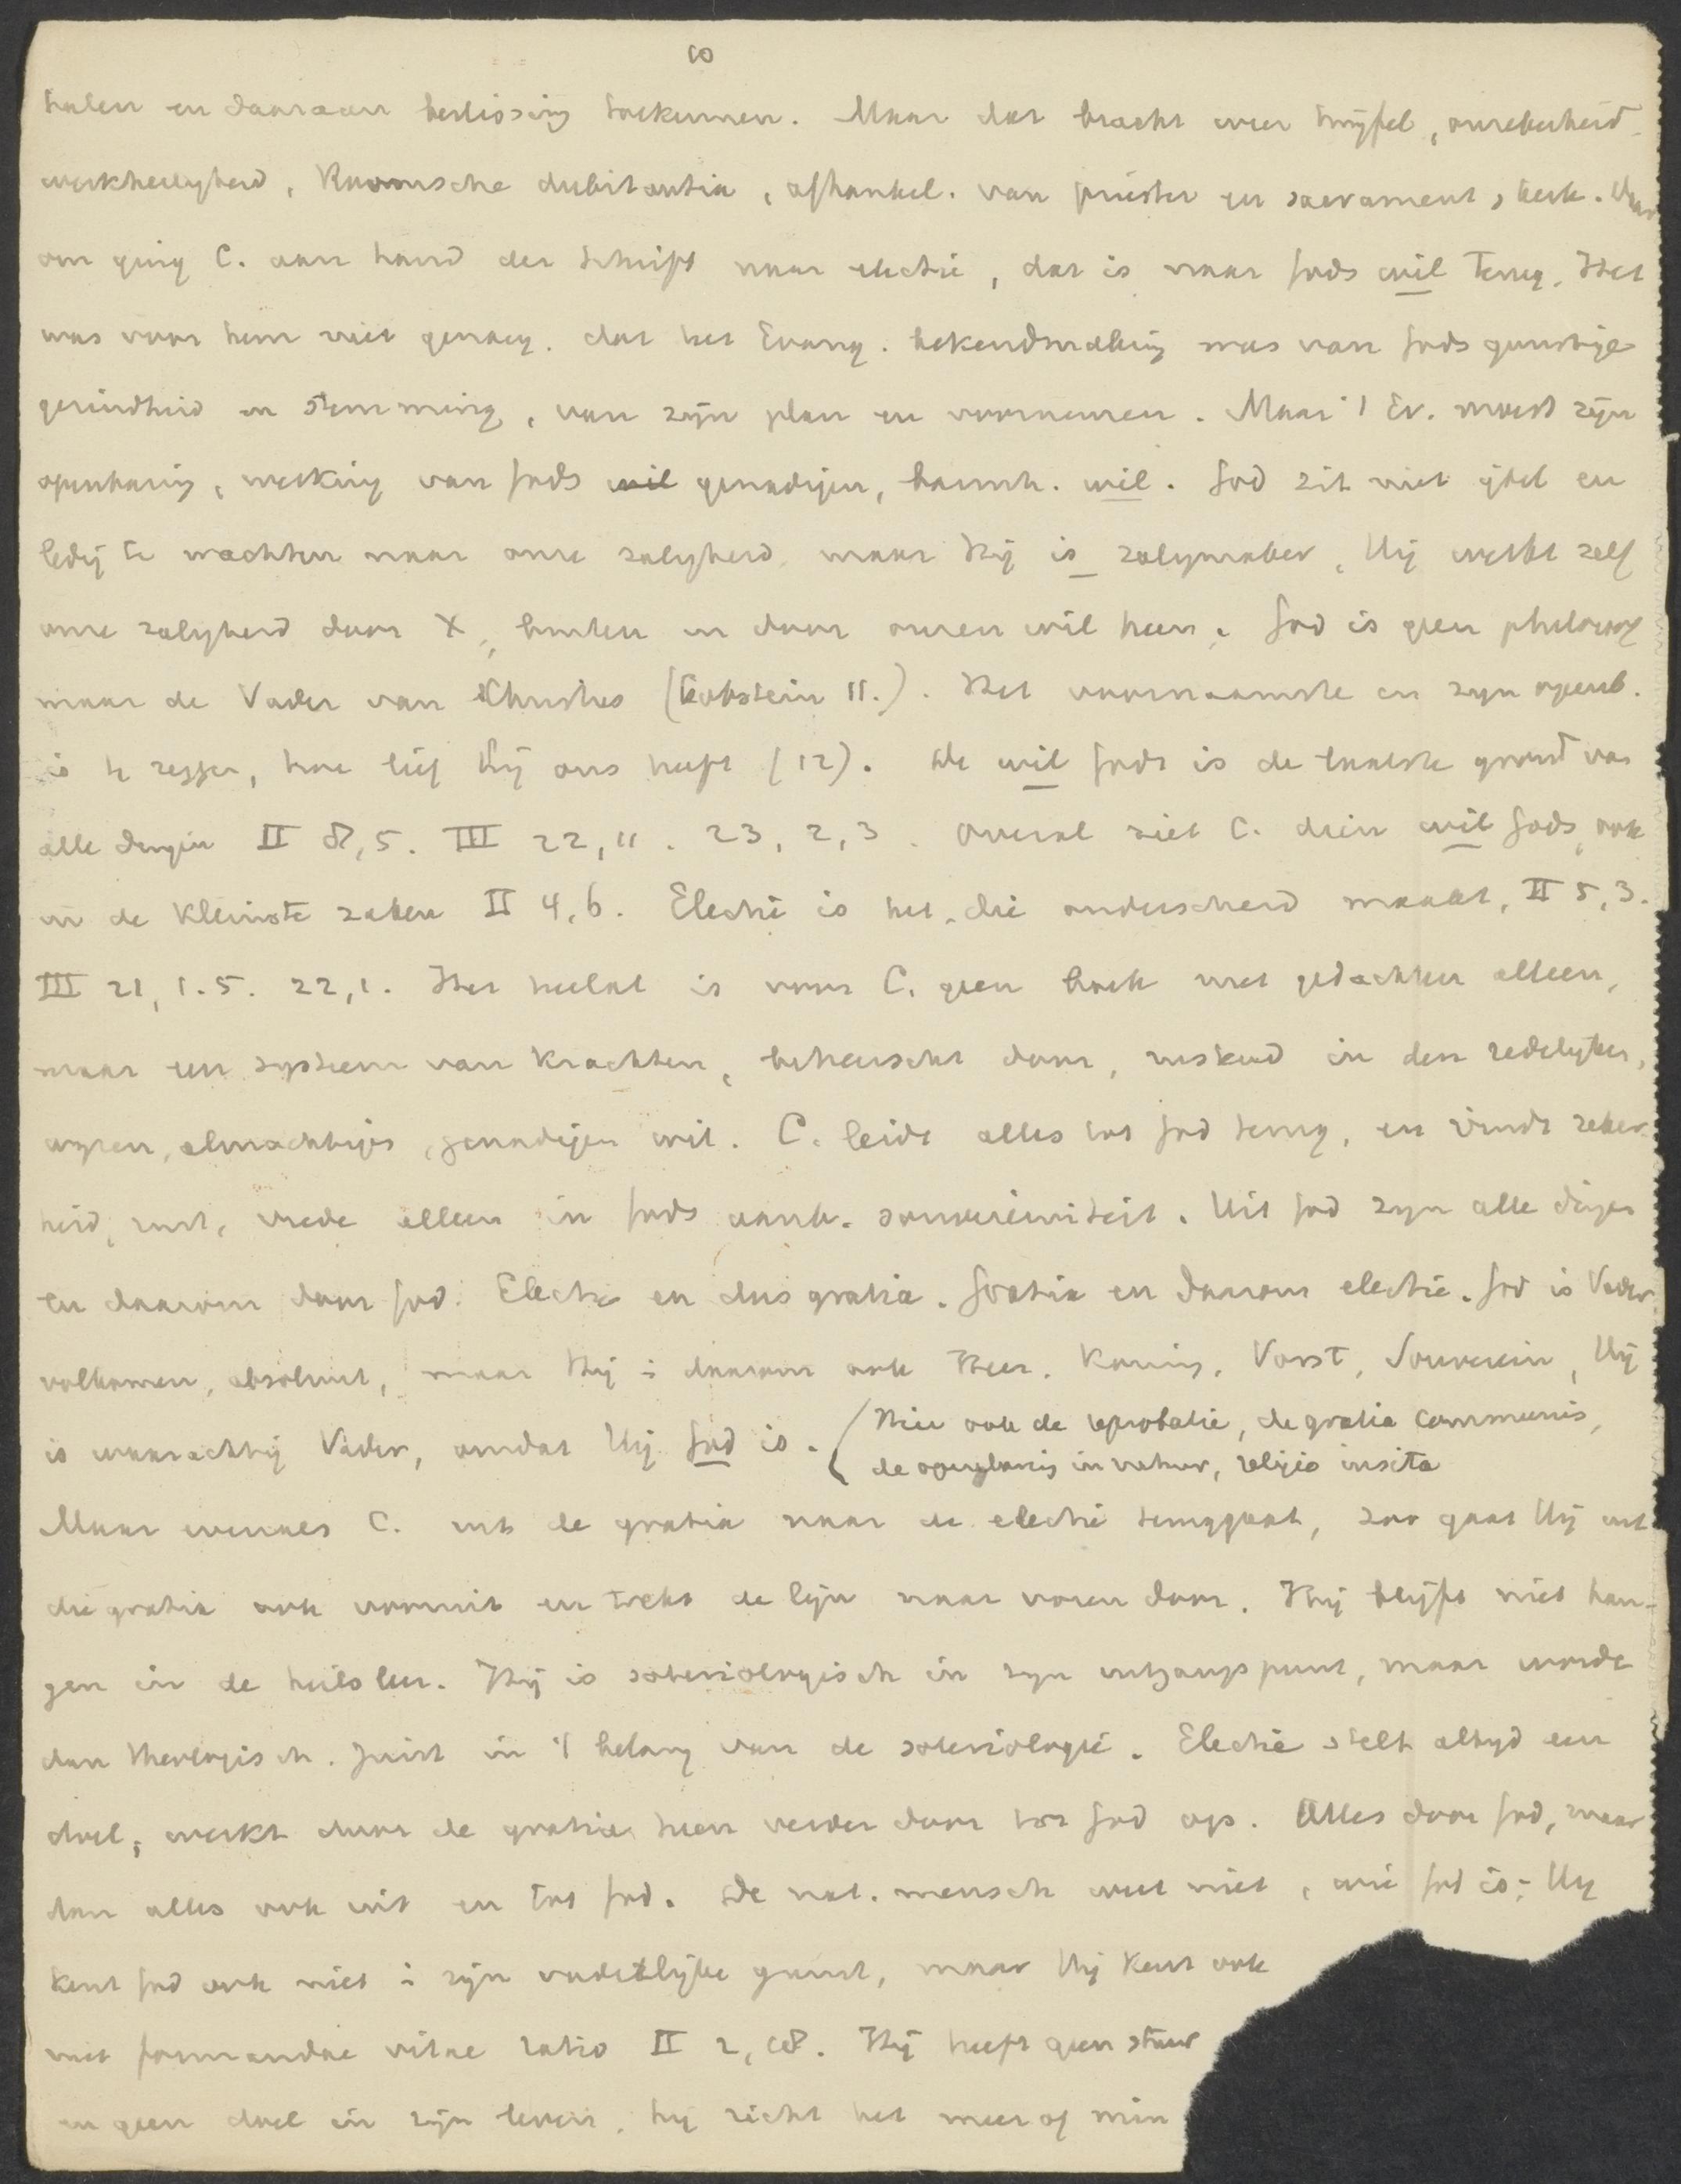 10
halen en daaraan beslissing toekennen. Maar dat bracht weer twijfel, onzekerheid,
werkheiligheid, Roomsche dubitantia, afhankel. van priester en sacrament, kerk. Daar
om ging C. aan hand der Schrift naar electie, dat is naar Gods wil terug. Het
was voor hem niet genoeg. dat het Evang. bekendmaking was van Gods gunstige
gezindheid en stemming, van zijn plan en voornemen. Maar 't Ev. moest zijn
openbaring, werking van Gods wil genadigen, barmh. wil. God zit niet ijdel en
ledig te wachten naar onze zaligheid, maar Hij is zaligmaker, Hij werkt zelf
onze zaligheid door X, buiten en door onzen wil heen. God is geen philosoof
maar de Vader van Christus (Lobstein 11.). Het voornaamste in zijn openb.
is te zeggen, hoe lief Hij ons heeft (12). De wil Gods is de laatste grond van
alle dingen II 8,5. III 22,11. 23, 2,3. Overal ziet C. dien wil Gods, ook
in de kleinste zaken II 4,6. Electie is het, die onderscheid maakt, II 5,3.
III 21, 1.5. 22,1. Het heelal is voor C. geen boek met gedachten alleen,
maar een systeem van krachten, beheerscht door, rustend in den redelijken,
wijzen, almachtigen, genadigen wil. C. leidt alles tot God terug, en vindt zeker-
heid, rust, vrede alleen in Gods souvereiniteit. Uit God zijn alle dingen
en daarom door God. Electie en dus gratia. Gratia en daarom electie. God is Vader
volkomen, absoluut, maar Hij is daarom ook Heer, Koning, Vorst, Souverein, Hij
is waarachtig Vader, omdat Hij God is. (Hier ook de reprobatie, de gratia communis,
de openbaring in natuur, religio insita
Maar evenals C. uit de gratia naar de electie teruggaat, zoo gaat Hij uit
die gratia ook vooruit en trekt de lijn naar voren door. Hij blijft niet han-
gen in de heilsleer. Hij is soteriologisch in zijn uitgangspunt, maar wordt
dan theologisch. Juist in 't belang van de soteriologie. Electie stelt altijd een
doel, werkt door de gratia heen verder door tot God op. Alles door God, maar
dan alles ook uit en tot God. De nat. mensch weet niet, wie God is; Hij
kent God ook niet in zijn vaderlijke gunst, maar Hij kent ook
niet formandae vitae ratio II 2, 18. Hij heeft geen stuur
en geen doel in zijn leven, hij richt het meer of min